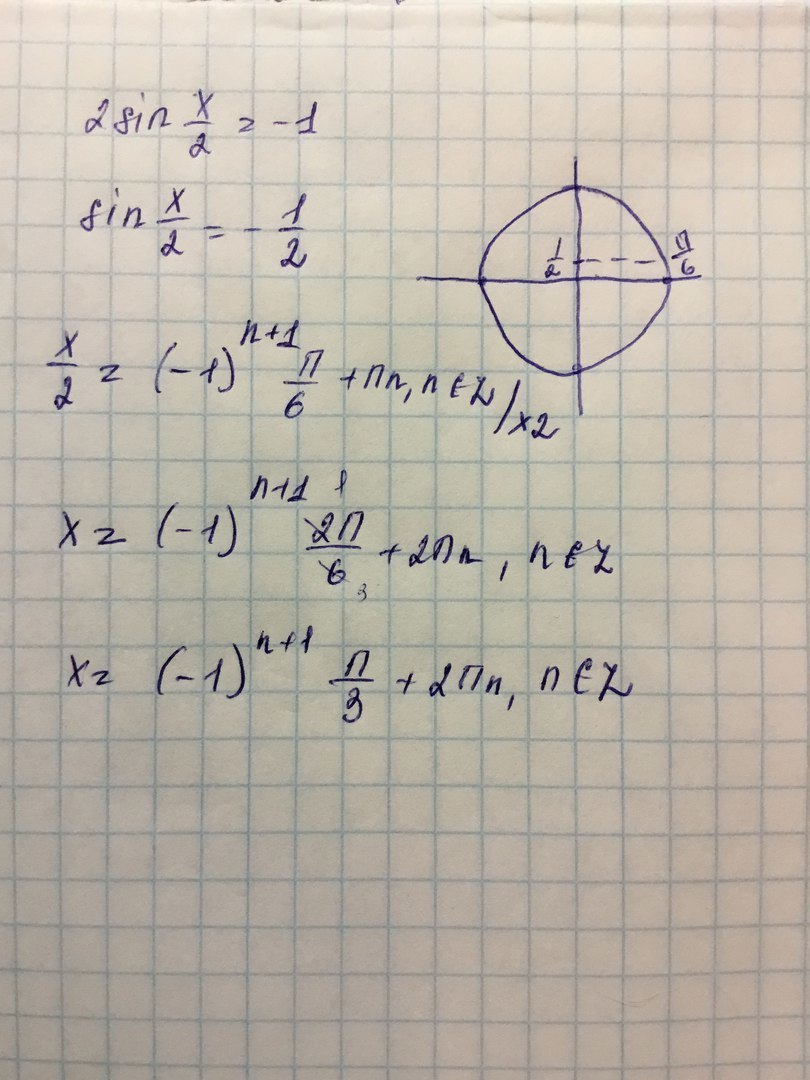 2 sin x/2 = -1
sin x/2 = - 1/2
1/2 П/6
x/2 = (-1)^(n+1) П/6 + Пn, n ∈ Z /×2
x = (-1)^(n+1) 2П/6 1 3 + 2Пn, n ∈ Z
x = (-1)^(n+1) П/3 + 2Пn, n ∈ Z